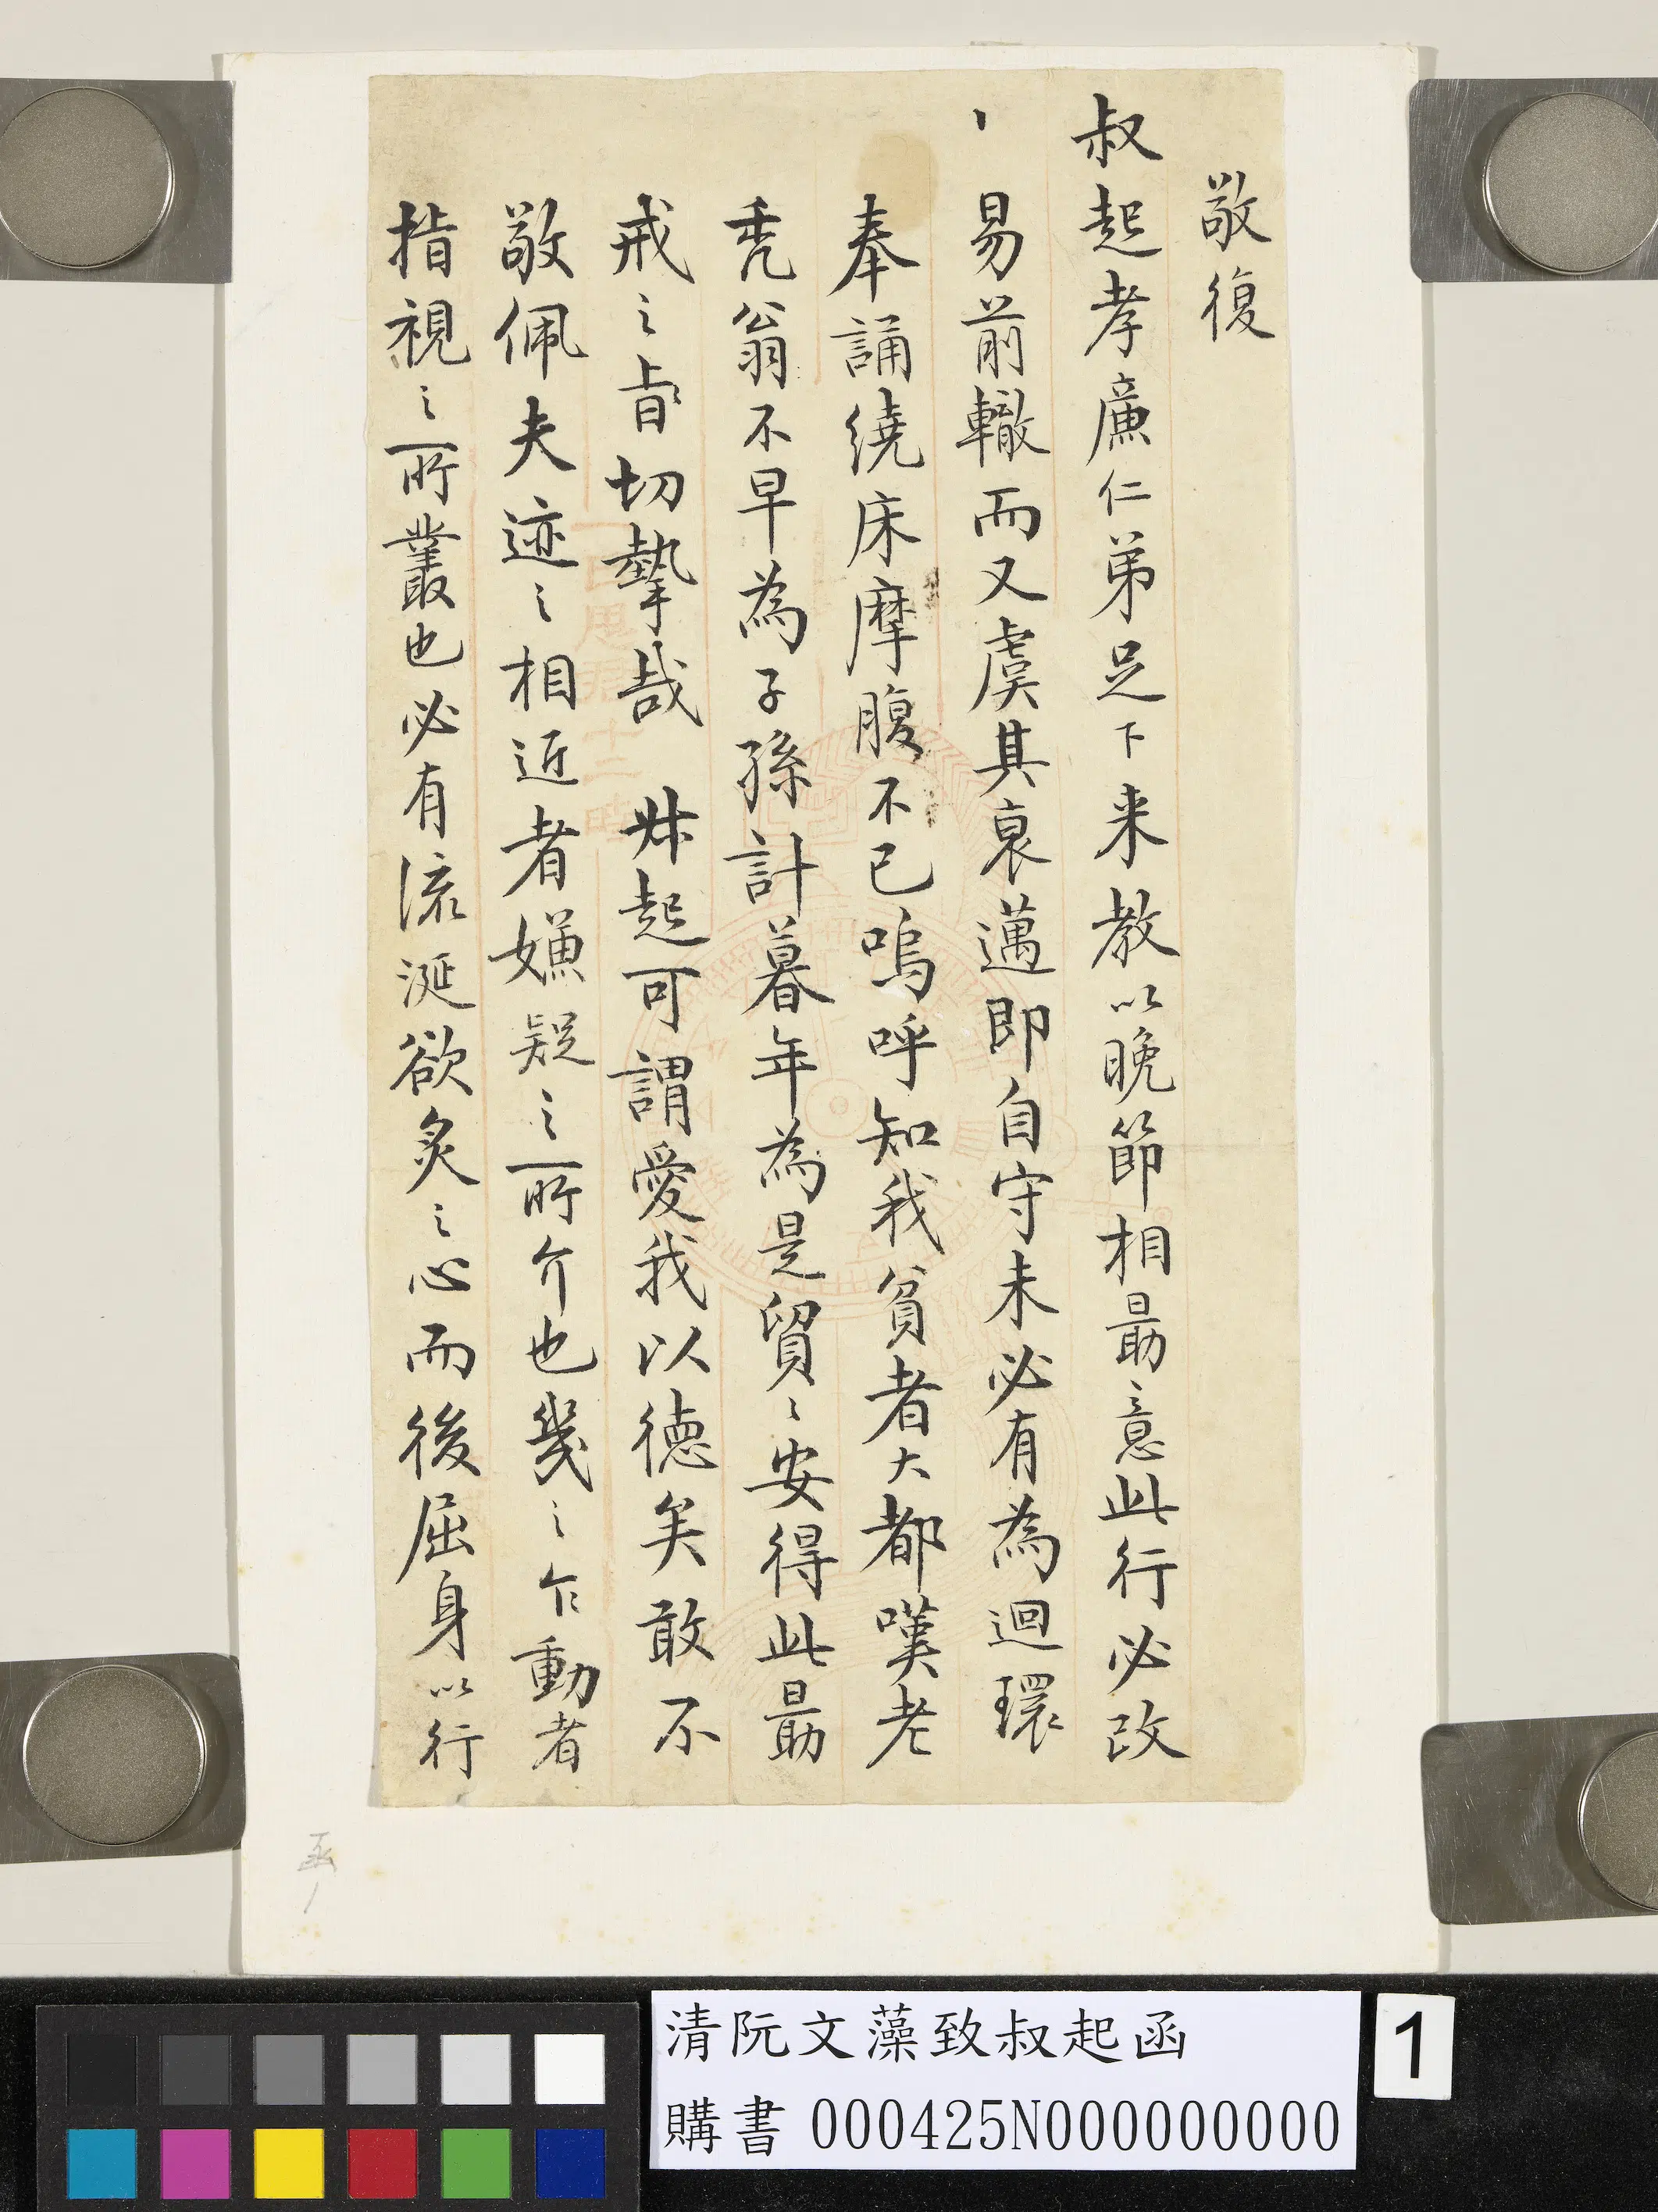 敬復
叔起孝廉仁弟足下来教以晚節相勗意此行必改
易前轍而又虞其衰邁即自守未必有為迴環
奉誦繞床摩腹不已嗚呼知我貧者大都嘆老
禿翁不早為子孫計暮年為是貿〻安得此勗
戒之旨切摯哉 叔起可謂愛我以德矣敢不
敬佩夫迹之相近者嫌疑之所介也幾之乍動者
指視之所叢也必有流涎欲炙之心而後屈身以行
函
1
清阮文藻致叔起函
購書 000425N000000000
1